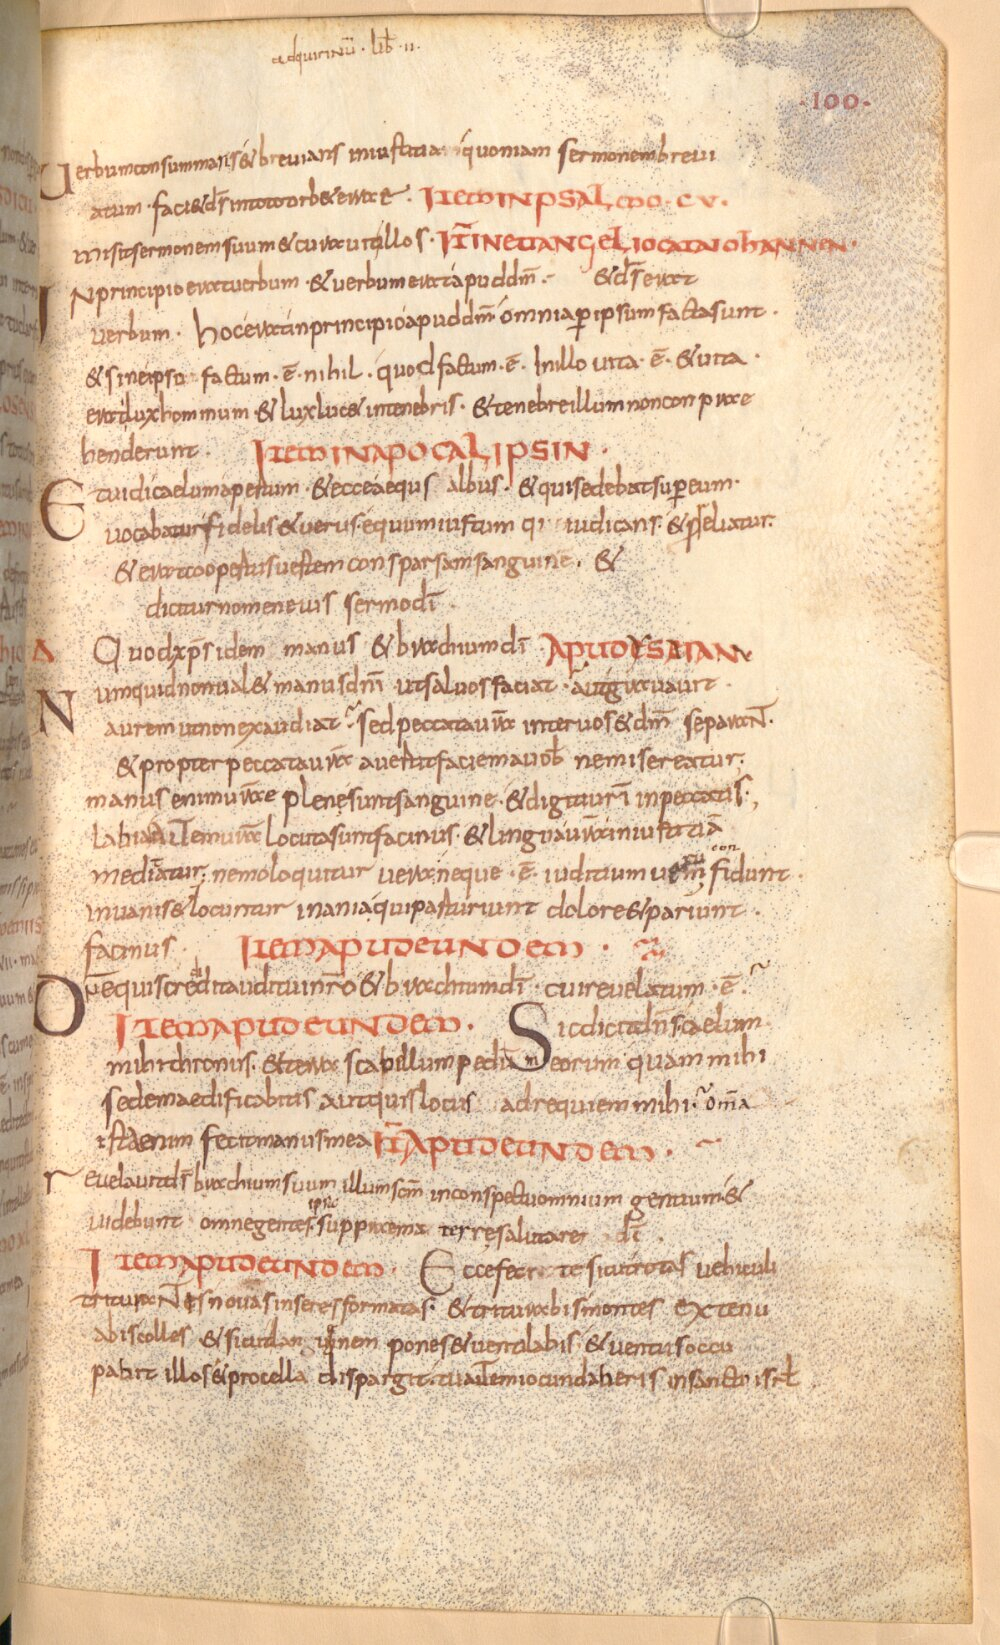 adquirinū · lib̄ · ii ·
·100·
Uerbum consummans & brevians in iustitia quoniam sermonem brevi
atum · faci& d̄s in toto orbe terrae · ITEM IN PSALMO · CV ·
misit sermonem suum & curavit illos · IT̄ IN EUANGELIO CATA IOHANNEN ·
IN principio erat uerbum · & uerbum erat apud dm̄ · & d̄s erat
uerbum · hoc erat in principio apud dm̄ omnia per ipsum facta sunt ·
& sine ipso factum · ē · nihil · quod factum · ē · In illo uita · ē · & uita ·
erat lux hominum · & lux luc& in tenebris · & tenebre illum non conprae
henderunt · ITEM IN APOCALIPSIN ·
Et uidi caelum apertum · & ecce aequs albus · & qui sedebat super eum ·
uocabatur fidelis & uerus · equum iustum iudicans · & praeliatur ·
& erat coopertus uestem consparsam sanguine · &
dicitur nomen eius sermo dī ·
A Quod xp̄s idem manus & brachium dī APUD ESAIAN
Numquid non ual& manus dnī ut salvos faciat · aut grauauit ·
aurem ut non exaudiat · sed peccata ur̄a inter uos & dm̄ separant ·
& propter peccata ur̄a auertit faciem a uob̄ ne misereatur ·
manus enim ur̄ae plene sunt sanguine · & digiti ur̄i in peccatis ·,
labia autem ur̄a locuta sunt facinus · & lingua ur̄a iniustitiā
meditatur · nemo loquitur uera · neque · ē · iuditium uerum confidunt ·
in uanis & locuntur inania qui parturiunt dolore & pariunt ·
facinus · ITEM APUD EUNDEM ·
Dn̄e quis credidit auditui nr̄o & brachium dī cui reuelatum · ē ·
ITEM APUD EUNDEM · Sic dicit dn̄s caelum
mihi thronus · & terra scabillum pedū meorum quam mihi
sedem aedificabitis aut quis locus ad requiem mihi · om̄a
ista enim fecit manus mea IT̄ APUD EUNDEM ·
reuelauit d̄s brachium suum illum scm̄ in conspectu omnium gentium · &
uidebunt omne gentes · ipsae supprema terre salutare dī ·
ITEM APUD EUNDEM · Ecce feci te sicut rotas uehiculi
triturantes nouas in seres formatas · & triturabis montes extenu
abis colles & sicut lanuginem pones & uentilabis · & uentus occu
pabit illos & procella disparget · tu autem iocundaberis in sanctis isrl̄